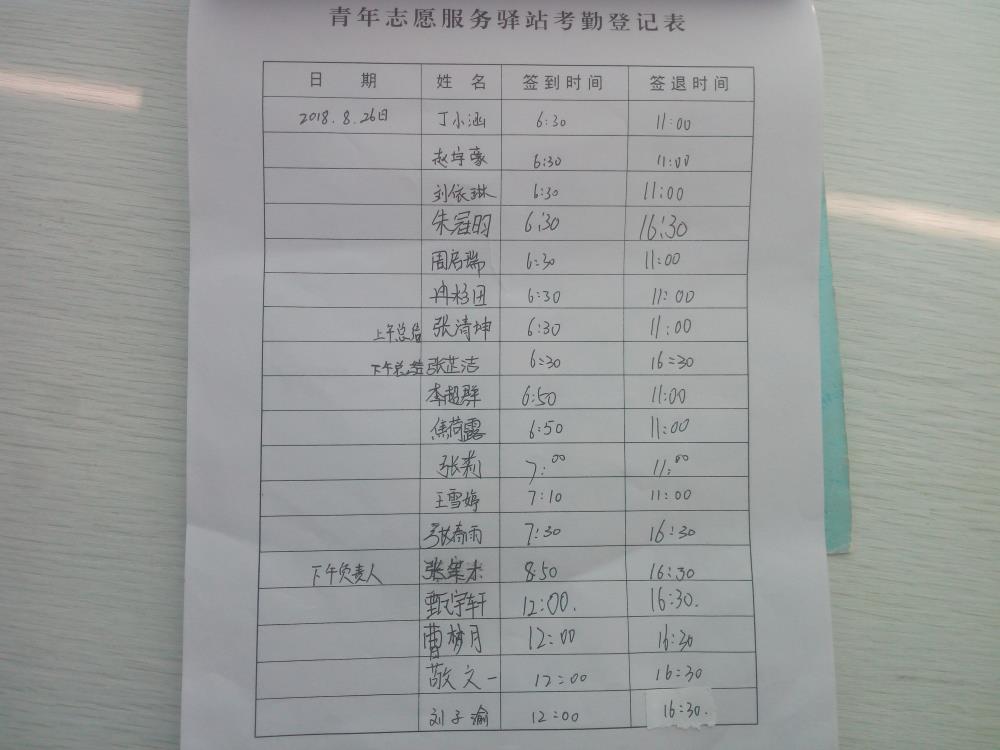 青年志愿服务驿站考勤登记表
日 期 姓 名 签到时间 签退时间
2018.8.26日 丁小涵 6:30 11:00
赵宇豪 6:30 11:00
刘依琳 6:30 11:00
朱冠明 6:30 16:30
周启瑞 6:30 11:00
冉杉田 6:30 11:00
上午总结 张清坤 6:30 11:00
下午总结 张芷洁 6:30 16:30
李超群 6:50 11:00
焦荷露 6:50 11:00
张莉 7:00 11:00
王雪婷 7:10 11:00
张春雨 7:30 16:30
下午负责人 8:50 16:30
甄宇轩 12:00. 16:30.
曹梦月 12:00 16:30
敬文一 12:00 16:30
刘子渝 12:00 16:30.